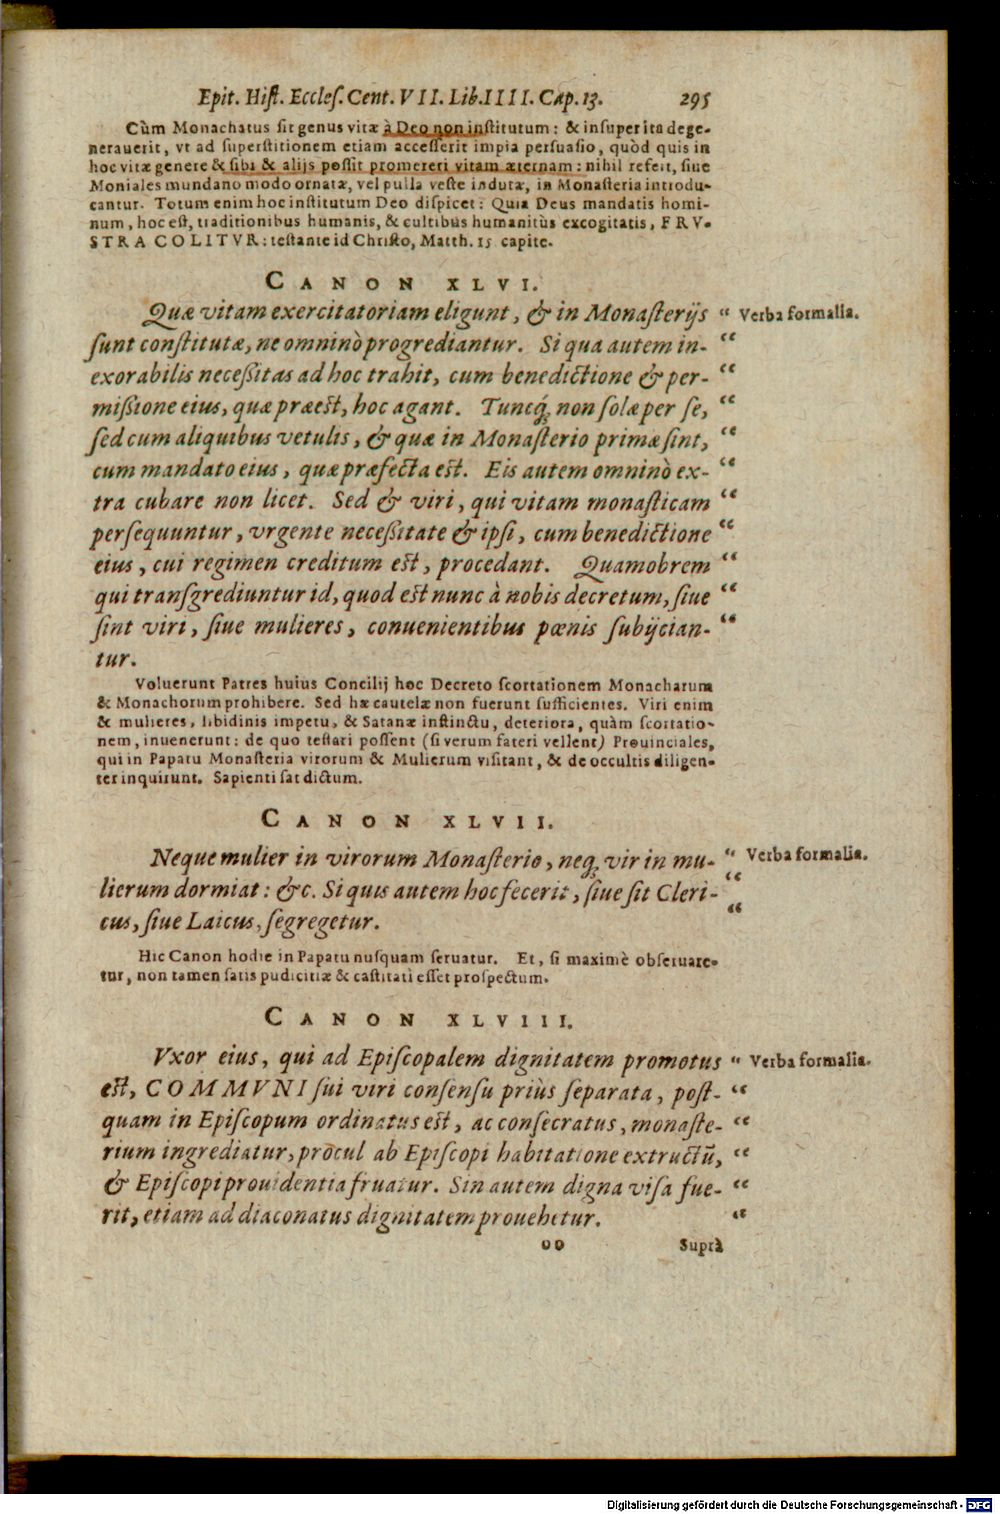 Epit. Hiſt. Eccleſ. Cent. VII. Lib. IIII. Cap. 13. 295
Cùm Monachatus ſit genus vitæ à Deo non inſtitutum: & inſuper ita dege-
nerauerit, vt ad ſuperſtitionem etiam acceſſerit impia perſuaſio, quòd quis in
hoc vitæ genere & ſibi & alijs poſſit promereri vitam æternam: nihil refert, ſiue
Moniales mundano modo ornatæ, vel pulla veſte indutæ, in Monaſteria introdu-
cantur. Totum enim hoc inſtitutum Deo diſpicet: Quia Deus mandatis homi-
num, hoc eſt, traditionibus humanis, & cultibus humanitùs excogitatis, FRV-
STRA COLITVR: teſtante id Chriſto, Matth. 15 capite.
CANON XLVI.
Quæ vitam exercitatoriam eligunt, & in Monaſterijs “ Verba formalia.
ſunt conſtitutæ, ne omninò progrediantur. Si qua autem in- “
exorabilis neceßitas ad hoc trahit, cum benedictione & per- “
mißione eius, quæ præeſt, hoc agant. Tuncq́; non ſolæ per ſe, “
ſed cum aliquibus vetulis, & quæ in Monaſterio primæ ſint, “
cum mandato eius, quæ præfecta eſt. Eis autem omninò ex- “
tra cubare non licet. Sed & viri, qui vitam monaſticam “
perſequuntur, vrgente neceßitate & ipſi, cum benedictione “
eius, cui regimen creditum eſt, procedant. Quamobrem “
qui tranſgrediuntur id, quod eſt nunc à nobis decretum, ſiue “
ſint viri, ſiue mulieres, conuenientibus pœnis ſubijcian- “
tur.
Voluerunt Patres huius Concilij hoc Decreto ſcortationem Monacharum
& Monachorum prohibere. Sed hæ cautelæ non fuerunt ſufficientes. Viri enim
& mulieres, libidinis impetu, & Satanæ inſtinctu, deteriora, quàm ſcortatio-
nem, inuenerunt: de quo teſtari poſſent (ſi verum fateri vellent) Prouinciales,
qui in Papatu Monaſteria virorum & Mulierum viſitant, & de occultis diligen-
ter inquirunt. Sapienti ſat dictum.
CANON XLVII.
Neque mulier in virorum Monaſterio, neq; vir in mu- “ Verba formalia.
lierum dormiat: &c. Si quis autem hoc fecerit, ſiue ſit Cleri- “
cus, ſiue Laicus, ſegregetur. “
Hic Canon hodie in Papatu nuſquam ſeruatur. Et, ſi maximè obſeruare-
tur, non tamen ſatis pudicitiæ & caſtitati eſſet proſpectum.
CANON XLVIII.
Vxor eius, qui ad Epiſcopalem dignitatem promotus “ Verba formalia.
eſt, COMMVNI ſui viri conſenſu priùs ſeparata, poſt- “
quam in Epiſcopum ordinatus eſt, ac conſecratus, monaſte- “
rium ingrediatur, procul ab Epiſcopi habitatione extructū, “
& Epiſcopi prouidentia fruatur. Sin autem digna viſa fue- “
rit, etiam ad diaconatus dignitatem prouehetur. “
oo Suprà
Digitalisierung gefördert durch die Deutsche Forschungsgemeinschaft - DFG